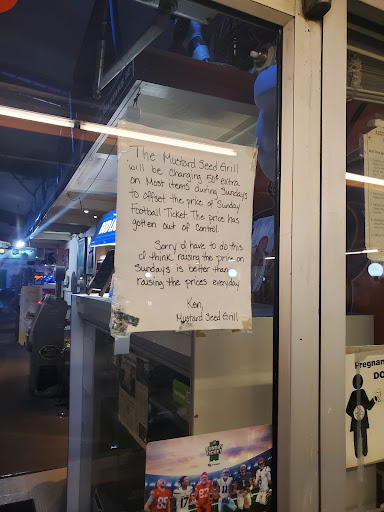 The Mustard Seed Grill
will be charging 50¢ extra
on Most items during Sundays
to offset the price of Sunday
Football Ticket. The price has
gotten out of control.
Sorry I have to do this
I think raising the price on
Sundays is better than
raising the prices everyday
Ken,
Mustard Seed Grill
Pregnan
DO
SUNDAY
TICKET
85
17
87